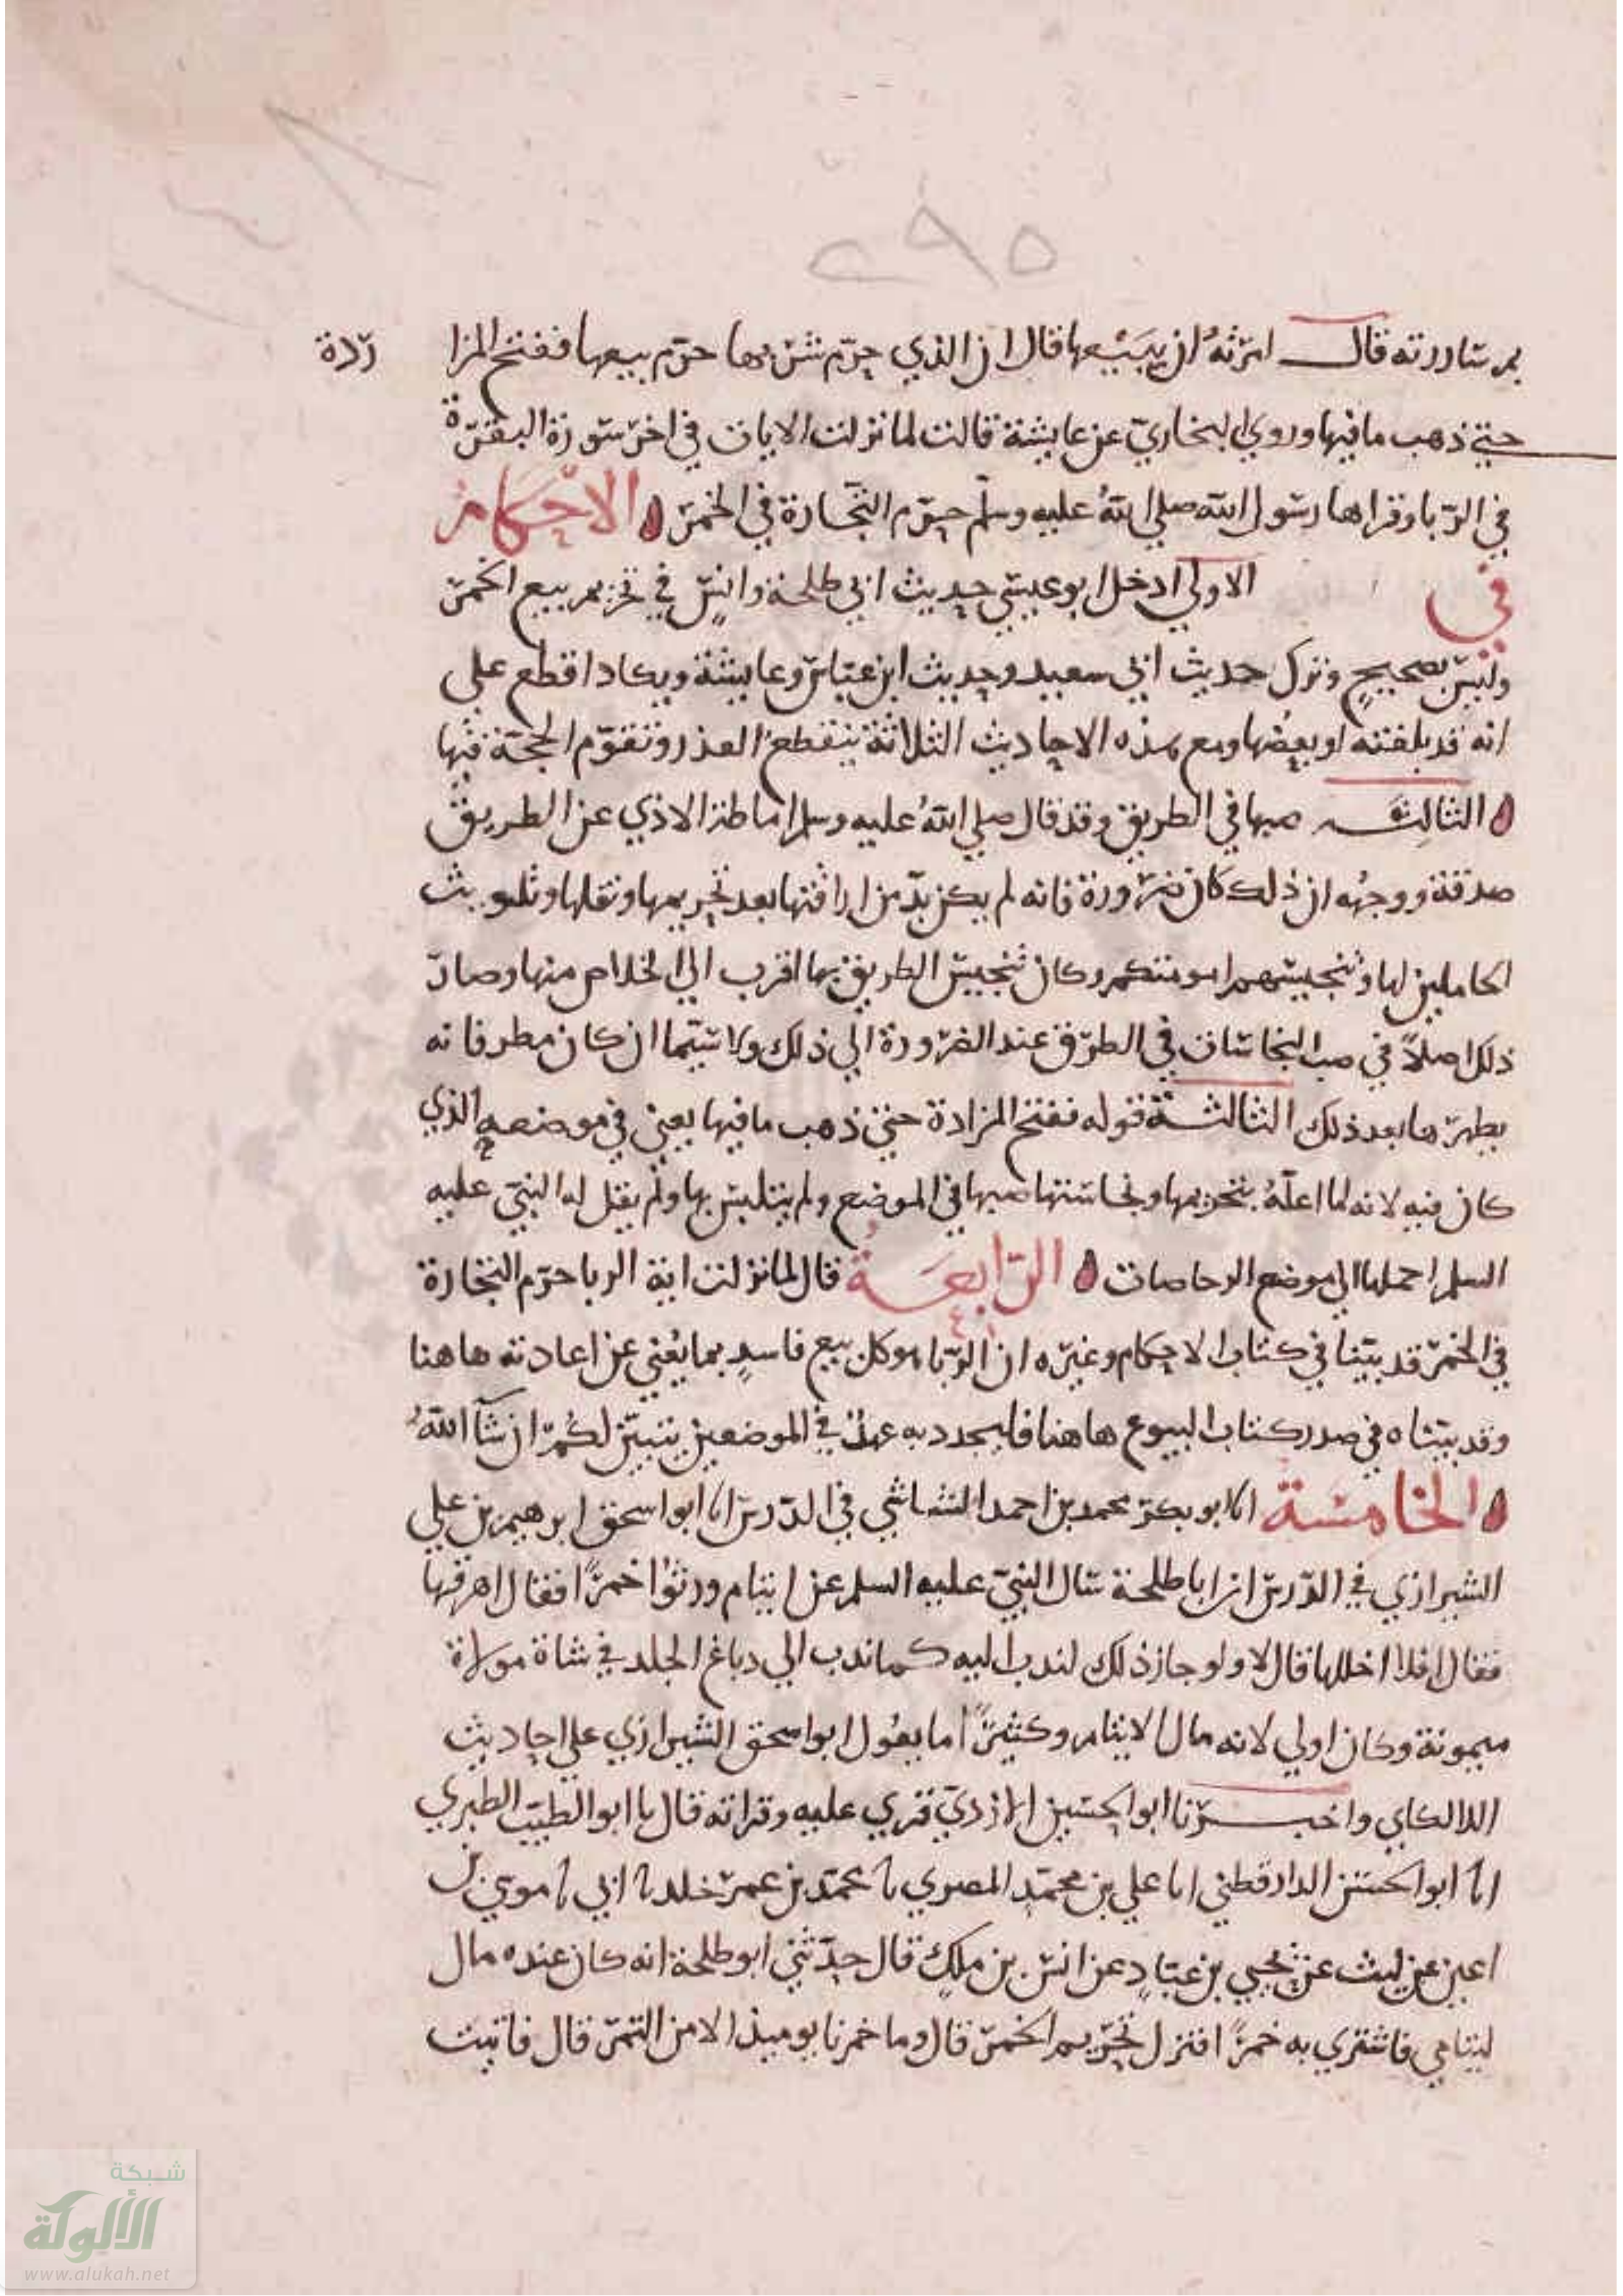 ٢٩٥
بم ساررته قال امرته ان يبيعها قال ان الذي حرم شربها حرم بيعها ففتح المزا ردة
حتي ذهب ما فيها وروي البخاري عن عايشة قالت لما نزلت الايات في اخر سورة البقرة
في الربا وقراها رسول الله صلي الله عليه وسلم حرم التجارة في الخمر الاحكام
في الاولي ادخل ابو عيسي حديث ابي طلحة وانس في تحريم بيع الخمر
وليس بصحيح وترك حديث ابي سعيد وحديث ابن عباس وعايشة ويكاد اقطع علي
انه قد بلغته او بعضها ومع هذه الاحاديث الثلاثة ينقطع العذر وتقوم الحجة فيها
الثالثة صبها في الطريق وقد قال صلي الله عليه وسلم اماطة الاذي عن الطريق
صدقة ووجهه ان ذلك كان ضرورة فانه لم يكن بد من اراقتها بعد تحريمها ونقلها وتلويث
الحاملين لها وتنجيسهم امو منكم وكان تنجيس الطريق بها اقرب الي الخلاص منها وصار
ذلك اصلاً في صب النجاسات في الطرق عند الضرورة الي ذلك ولا سيما ان كان مطر فانه
يطهرها بعد ذلك الثالثة قوله ففتح المزادة حتي ذهب ما فيها يعني في موضعه الذي
كان فيه لانه لما اعلمه بتحريمها ونجاستها صبها في الموضع ولم يتلبس بها ولم يقل له النبي عليه
السلم احملها الي موضع الرحاصات الرابعة قال لما نزلت اية الربا حرم التجارة
في الخمر قد بينا في كتاب الاحكام وغيره ان الربا هو كل بيع فاسد بما يغني عن اعادته هاهنا
وقد بيناه في صدر كتاب البيوع هاهنا فليجدد به عهدٌ في الموضعين يتبين لكم ان شآ الله
الخامسة انا ابو بكر محمد بن احمد الشاشي في الدرس انا ابو اسحق ابرهيم بن علي
الشيرازي في الدرس ان ابا طلحة سال النبي عليه السلم عن ايتام ورثوا خمرًا فقال اهرقها
فقال افلا اخللها قال لا ولو جاز ذلك لندب اليه كما ندب الي دباغ الجلد في شاة مولاة
ميمونة وكان اولي لانه مال الايتام وكثيرًا ما يعول ابو اسحق الشيرازي علي احاديث
اللالكاي واخبرنا ابو الحسين الازدي قري عليه وقراته قال نا ابو الطيب الطبري
انا ابو الحسن الدارقطني انا علي بن محمد المصري نا محمد بن عمر خلد نا ابي نا موسي بن
اعين عن ليث عن يحيي بن عباد عن انس بن ملك قال حدثني ابو طلحة انه كان عنده مال
ليتامي فاشتري به خمرًا فنزل تحريم الخمر قال وما خمرنا يوميذ الا من التمر قال فاتيت
شبكة
الألوكة
www.alukah.net